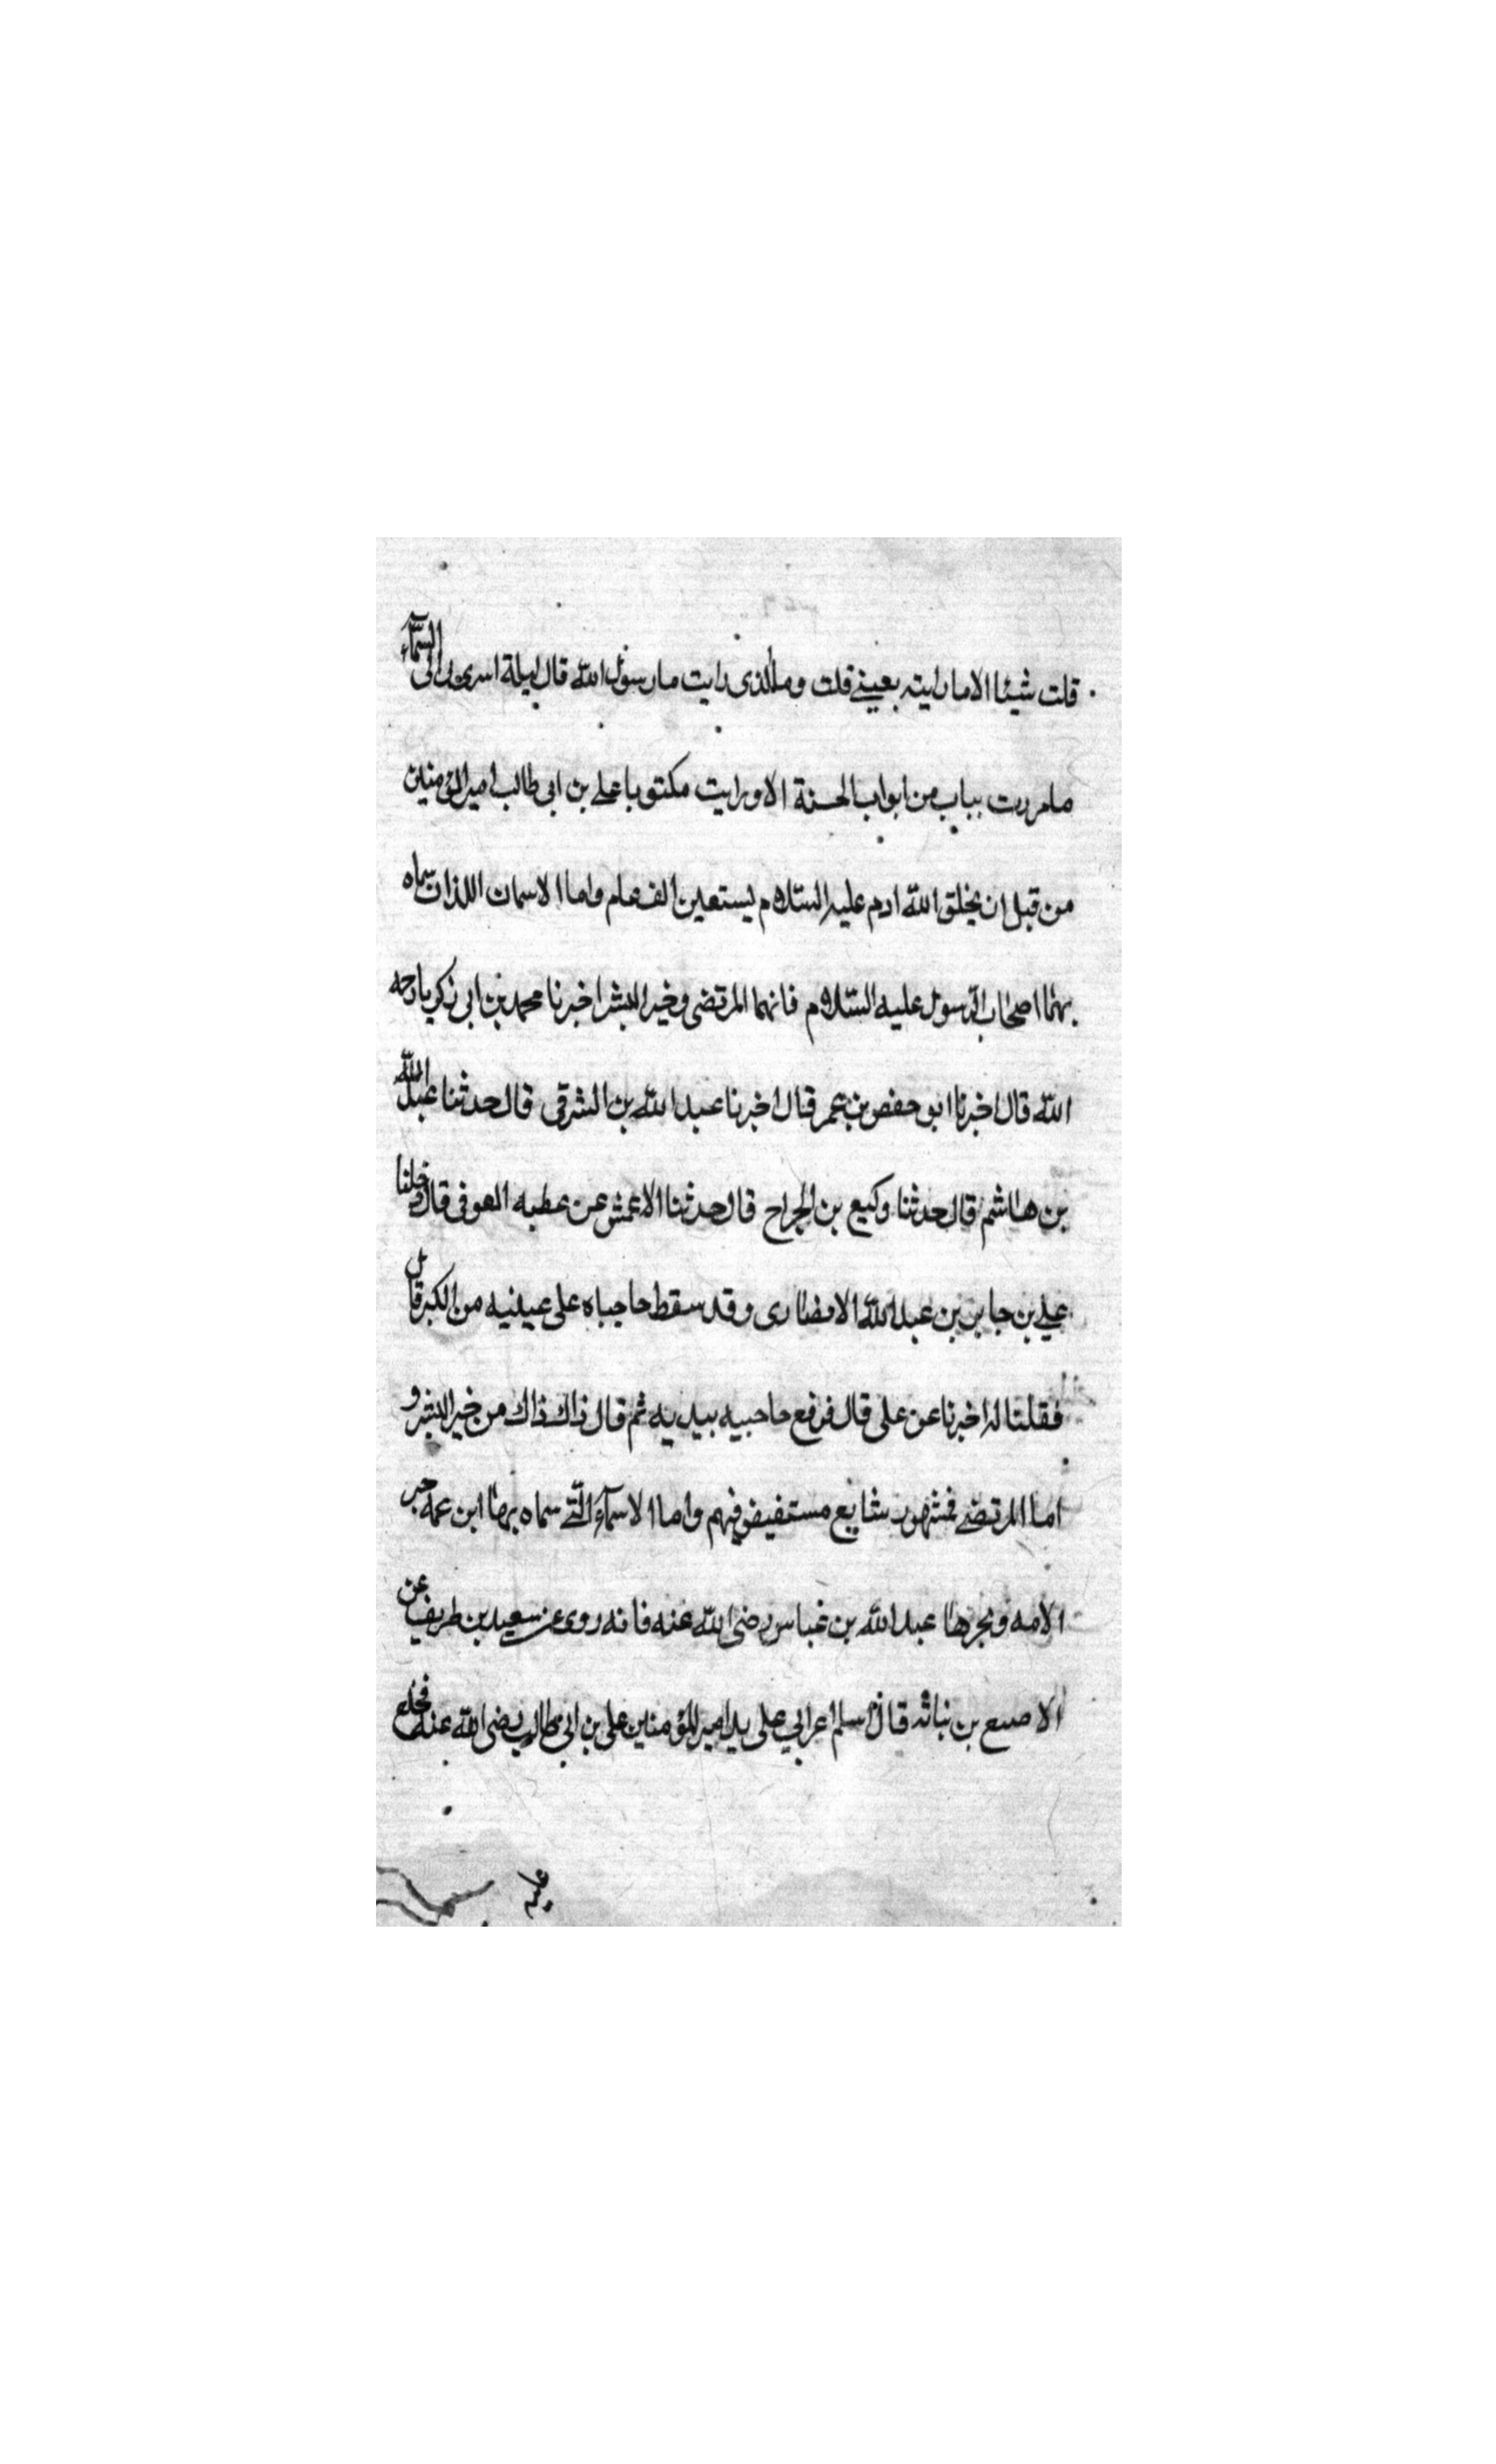 قلت شيئا الا ما رايته بعينى قلت وما الذى رايت يا رسول الله قال ليلة اسرى بى الى السمآء
ما مررت بباب من ابواب الجنة الا ورايت مكتوبا على بن ابى طالب امير المؤمنين
من قبل ان يخلق الله ادم عليه السلام بسبعين الف عام واما الاسمان اللذان سماه
بهما اصحاب الرسول عليه السلام فانهما المرتضى وخير البشر اخبرنا محمد بن ابى زكريا رحمه
الله قال اخبرنا ابو حفص بن عمر قال اخبرنا عبد الله بن الشرقى قال حدثنا عبد الله
بن هاشم قال حدثنا وكيع بن الجراح قال حدثنا الاعمش عن عطيه العوفى قال دخلنا
على بن جابر بن عبد الله الانصارى وقد سقط حاجباه على عينيه من الكبر قال
فقلنا له اخبرنا عن على قال فرفع حاجبيه بيديه ثم قال ذاك ذاك من خير البشر و
اما المرتضى فمشهور شايع مستفيض فيهم واما الاسمآء التى سماه بها ابن عمه حبر
الامه وبحرها عبد الله بن عباس رضى الله عنه فانه روى عن سعيد بن طريف عن
الاصبع بن نباته قال اسلم اعرابي على يد امير المؤمنين على بن ابى طالب رضى الله عنه فخلع
عليه